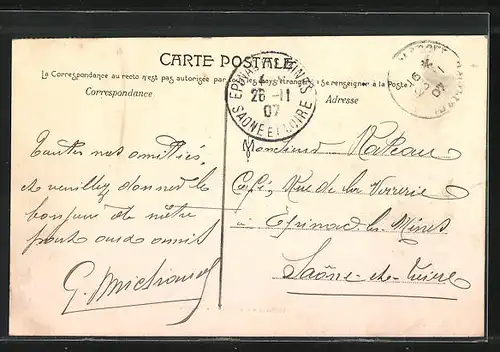 CARTE POSTALE
La Correspondance au recto n'est pas autorisée par les pays étrangers (Se renseigner à la Poste)
Correspondance
Adresse
EPINAC LES MINES
26 -11
07
SAONE ET LOIRE
07
Toutes nos amitiés
et veuillez donner le
bonjour de notre
part aux amis
G. Michaud
Monsieur Rateau
Café, Rue de la Verrerie
à Epinac les Mines
Saône-et-Loire